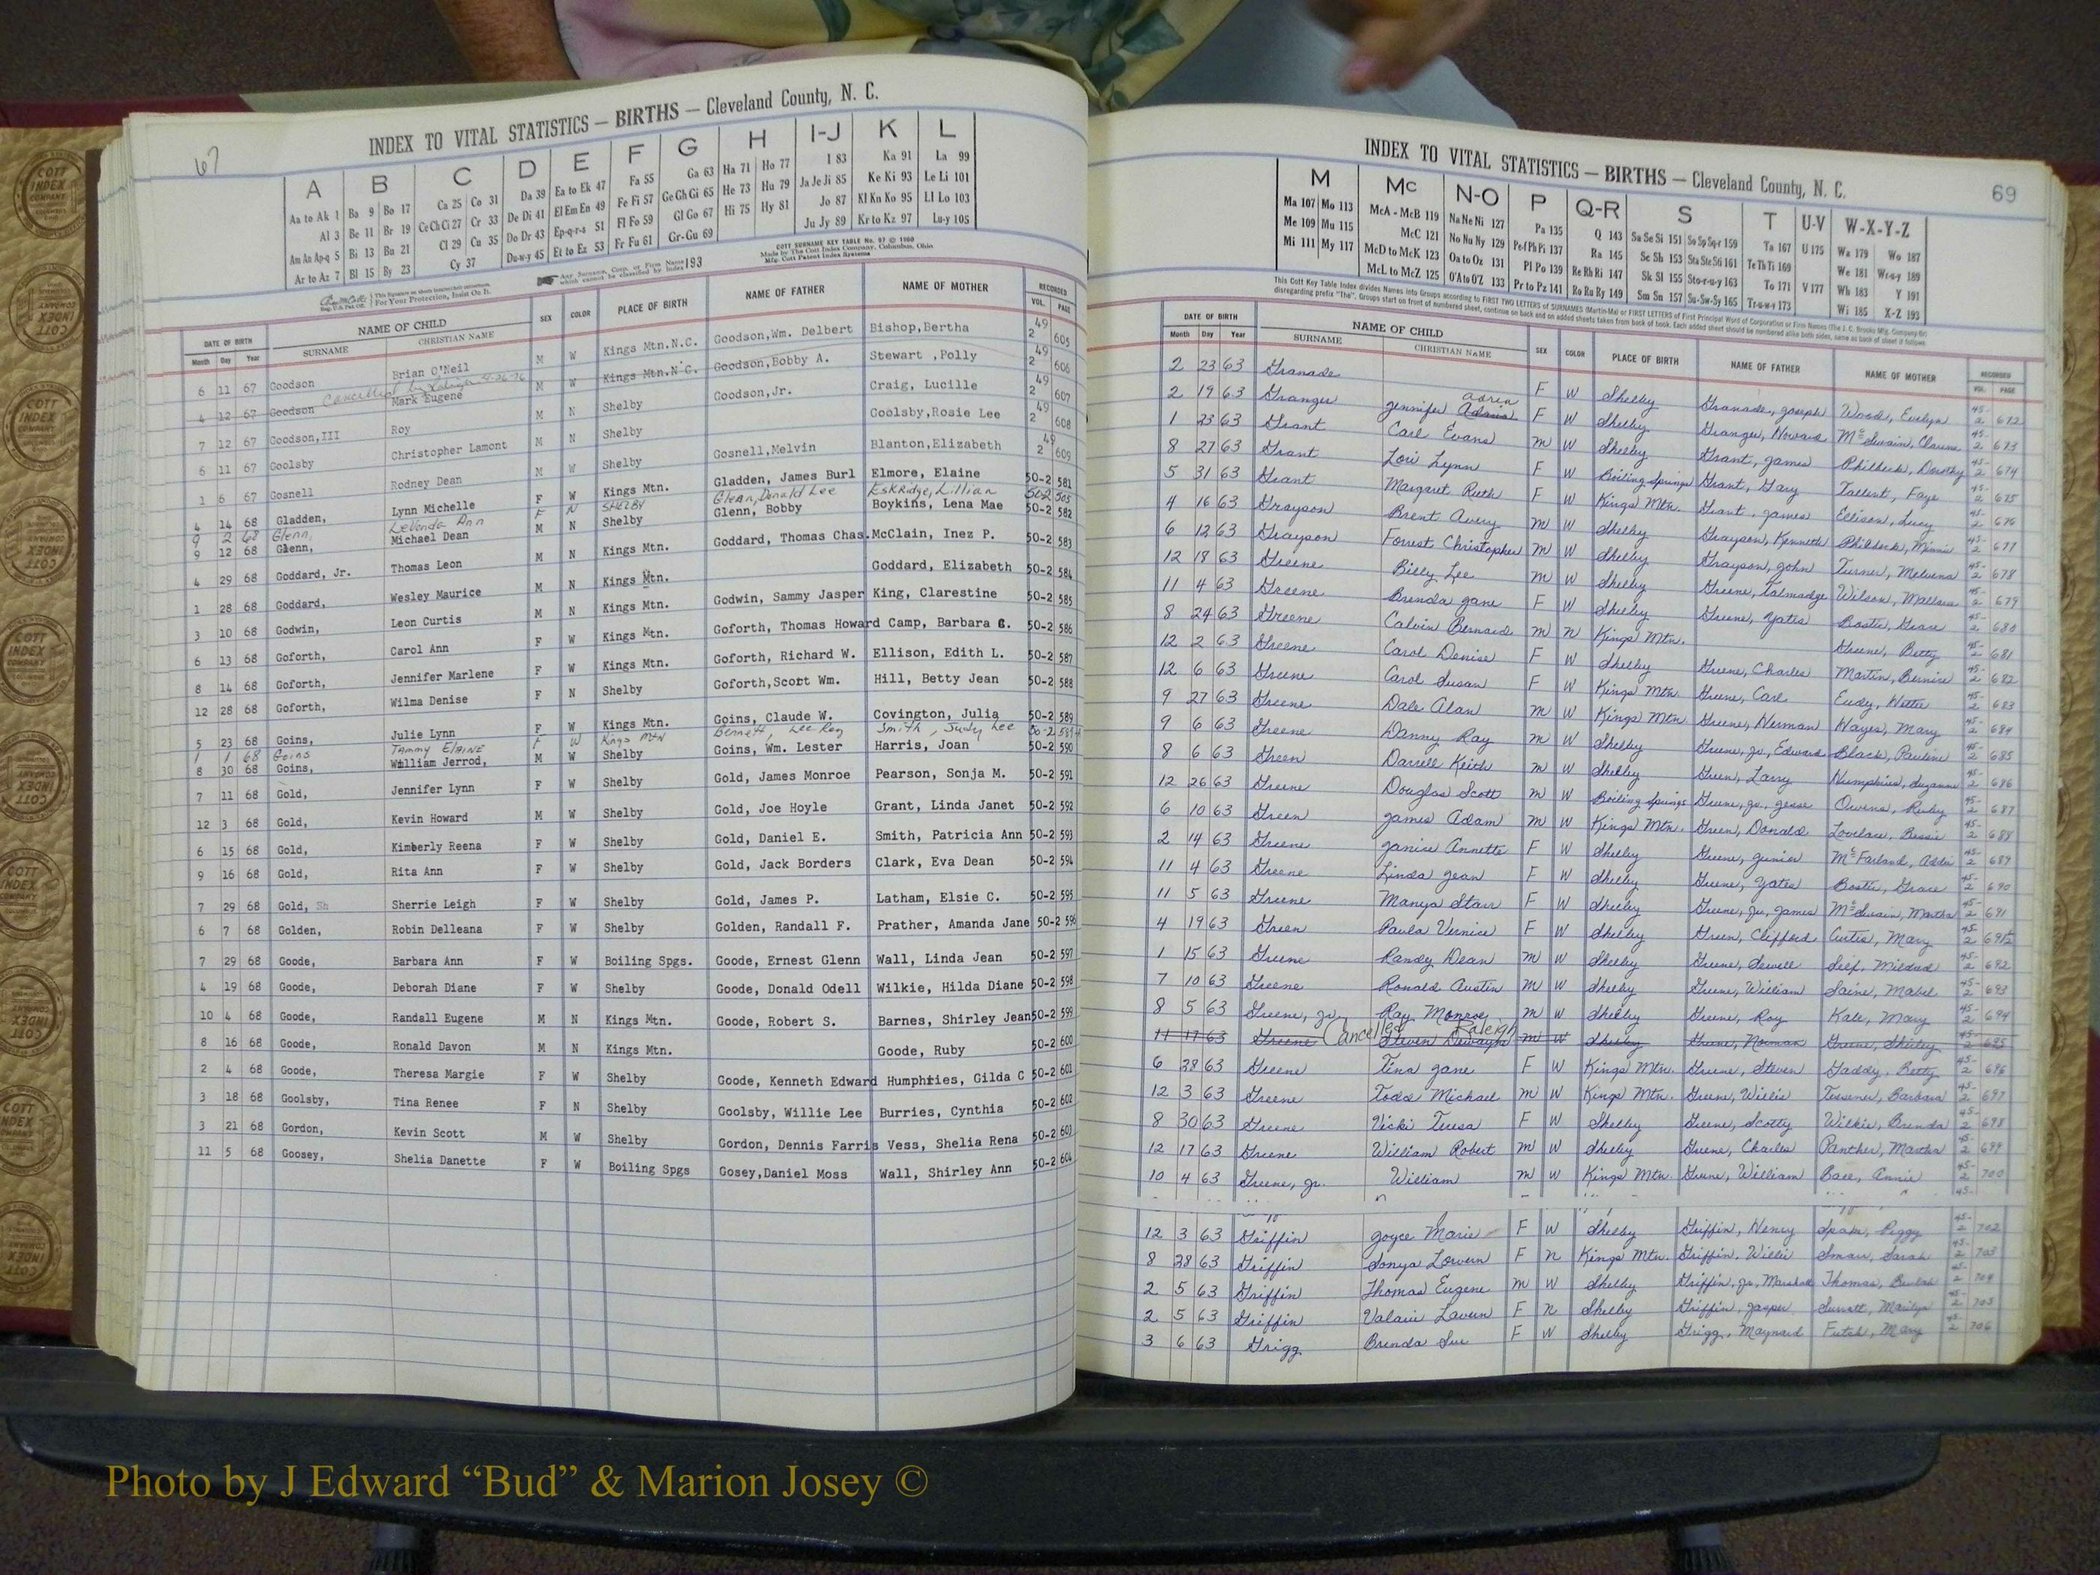 67
INDEX TO VITAL STATISTICS — BIRTHS — Cleveland County, N. C.
A B C D E F G H I-J K L
Aa to Ak 1 Ba 9 Bo 17 Ca 25 Co 31 Da 39 Ea to Ek 47 Fa 55 Ga 63 Ha 71 Ho 77 I 83 Ka 91 La 99
Al 3 Be 11 Br 19 Ce Ch Ci 27 Cr 33 De Di 41 El Em En 49 Fe Fi 57 Ge Gh Gi 65 He 73 Hu 79 Ja Je Ji 85 Ke Ki 93 Le Li 101
Am An Ap-q 5 Bi 13 Bu 21 Cl 29 Cu 35 Do Dr 43 Ep-q-r-s 51 Fl Fo 59 Gl Go 67 Hi 75 Hy 81 Jo 87 Kl Kn Ko 95 Ll Lo 103
Ar to Az 7 Bl 15 By 23 Cy 37 Du-w-y 45 Et to Ez 53 Fr Fu 61 Gr-Gu 69 Ju Jy 89 Kr to Kz 97 Lu-y 105
COTT SURNAME KEY TABLE No. 97 © 1960
Made by The Cott Index Company, Columbus, Ohio
Mfg. Cott Patent Index Systems
Any Surname, Corp. or Firm Name which cannot be classified by Index 193
For Your Protection, Insist On It.
DATE OF BIRTH NAME OF CHILD SEX COLOR PLACE OF BIRTH NAME OF FATHER NAME OF MOTHER RECORDED
Month Day Year SURNAME CHRISTIAN NAME VOL. PAGE
6 11 67 Goodson Brian O'Neil M W Kings Mtn.N.C. Goodson,Wm. Delbert Bishop,Bertha 49 2 605
Cancelled by Raleigh
4 12 67 Goodson Mark Eugene M W Kings Mtn.N.C. Goodson,Bobby A. Stewart ,Polly 49 2 606
7 12 67 Goodson,III Roy M N Shelby Goodson,Jr. Craig, Lucille 49 2 607
6 11 67 Goolsby Christopher Lamont M N Shelby Goolsby,Rosie Lee 49 2 608
1 6 67 Gosnell Rodney Dean M W Shelby Gosnell,Melvin Blanton,Elizabeth 49 2 609
4 14 68 Gladden, Lynn Michelle F W Kings Mtn. Gladden, James Burl Elmore, Elaine 50-2 581
9 2 68 Glenn, LeVonda Ann F N SHELBY Glenn, Donald Lee Eskridge, Lillian 50-2 505
9 12 68 Glenn, Michael Dean M N Shelby Glenn, Bobby Boykins, Lena Mae 50-2 582
4 29 68 Goddard, Jr. Thomas Leon M N Kings Mtn. Goddard, Thomas Chas. McClain, Inez P. 50-2 583
1 28 68 Goddard, Wesley Maurice M N Kings Mtn. Goddard, Elizabeth 50-2 584
3 10 68 Godwin, Leon Curtis M N Kings Mtn. Godwin, Sammy Jasper King, Clarestine 50-2 585
6 13 68 Goforth, Carol Ann F W Kings Mtn. Goforth, Thomas Howard Camp, Barbara C. 50-2 586
8 14 68 Goforth, Jennifer Marlene F W Kings Mtn. Goforth, Richard W. Ellison, Edith L. 50-2 587
12 28 68 Goforth, Wilma Denise F N Shelby Goforth,Scott Wm. Hill, Betty Jean 50-2 588
5 23 68 Goins, Julie Lynn F W Kings Mtn. Goins, Claude W. Covington, Julia 50-2 589
1 1 68 Goins Tammy Elaine F W Kings Mtn Bennett, Lee Roy Smith, Judy Lee
8 30 68 Goins, William Jerrod, M W Shelby Goins, Wm. Lester Harris, Joan 50-2 590
7 11 68 Gold, Jennifer Lynn F W Shelby Gold, James Monroe Pearson, Sonja M. 50-2 591
12 3 68 Gold, Kevin Howard M W Shelby Gold, Joe Hoyle Grant, Linda Janet 50-2 592
6 15 68 Gold, Kimberly Reena F W Shelby Gold, Daniel E. Smith, Patricia Ann 50-2 593
9 16 68 Gold, Rita Ann F W Shelby Gold, Jack Borders Clark, Eva Dean 50-2 594
7 29 68 Gold, Sherrie Leigh F W Shelby Gold, James P. Latham, Elsie C. 50-2 595
6 7 68 Golden, Robin Delleana F W Shelby Golden, Randall F. Prather, Amanda Jane 50-2 596
7 29 68 Goode, Barbara Ann F W Boiling Spgs. Goode, Ernest Glenn Wall, Linda Jean 50-2 597
4 19 68 Goode, Deborah Diane F W Shelby Goode, Donald Odell Wilkie, Hilda Diane 50-2 598
10 4 68 Goode, Randall Eugene M N Kings Mtn. Goode, Robert S. Barnes, Shirley Jean 50-2 599
8 16 68 Goode, Ronald Davon M N Kings Mtn. Goode, Ruby 50-2 600
2 4 68 Goode, Theresa Margie F W Shelby Goode, Kenneth Edward Humphries, Gilda C 50-2 601
3 18 68 Goolsby, Tina Renee F N Shelby Goolsby, Willie Lee Burries, Cynthia 50-2 602
3 21 68 Gordon, Kevin Scott M W Shelby Gordon, Dennis Farris Vess, Shelia Rena 50-2 603
11 5 68 Goosey, Shelia Danette F W Boiling Spgs Gosey,Daniel Moss Wall, Shirley Ann 50-2 604
INDEX TO VITAL STATISTICS — BIRTHS — Cleveland County, N. C. 69
M Mc N-O P Q-R S T U-V W-X-Y-Z
Ma 107 Mo 113 McA - McB 119 Na Ne Ni 127 Pa 135 Q 143 Sa Se Si 151 So Sp Sq-r 159 Ta 167 U 175 Wa 179 Wo 187
Me 109 Mu 115 McC 121 No Nu Ny 129 Pe-f Ph Pi 137 Ra 145 Sc Sh 153 Sta Ste Sti 161 Te Th Ti 169 We 181 Wr-u-y 189
Mi 111 My 117 McD to McK 123 Oa to Oz 131 Pl Po 139 Re Rh Ri 147 Sk Sl 155 Sto-r-u-y 163 To 171 V 177 Wh 183 Y 191
McL to McZ 125 O'A to O'Z 133 Pr to Pz 141 Ro Ru Ry 149 Sm Sn 157 Su-Sw-Sy 165 Tr-u-w-y 173 Wi 185 X-Z 193
This Cott Key Table Index divides Names into Groups according to FIRST TWO LETTERS of SURNAMES (Martin-Ma) or FIRST LETTERS of First Principal Word of Corporation or Firm Names (The J. C. Brooks Mfg. Company-Br)
disregarding prefix "The". Groups start on front of numbered sheet, continue on back and on added sheets taken from back of book. Each added sheet should be numbered alike both sides, same as back of sheet it follows
DATE OF BIRTH NAME OF CHILD SEX COLOR PLACE OF BIRTH NAME OF FATHER NAME OF MOTHER RECORDED
Month Day Year SURNAME CHRISTIAN NAME VOL. PAGE
2 23 63 Granade F W Shelby Granade, Joseph Woods, Evelyn 45-2 672
2 19 63 Granger Jennifer Adria F W Shelby Granger, Howard McSwain, 45-2 673
1 23 63 Grant Carl Evans M W Shelby Grant, James Philbeck, Dorothy 45-2 674
8 27 63 Grant Lori Lynn F W Boiling Springs Grant, Gary Tallent, Faye 45-2 675
5 31 63 Grant Margaret Ruth F W Kings Mtn. Grant, James Ellison, Lucy 45-2 676
4 16 63 Grayson Brent Avery M W Shelby Grayson, Kenneth Philbeck, Minnie 45-2 677
6 12 63 Grayson Forrest Christopher M W Shelby Grayson, John Turner, Melvena 45-2 678
12 18 63 Greene Billy Lee M W Shelby Greene, Talmadge Wilson, 45-2 679
11 4 63 Greene Brenda Jane F W Shelby Greene, Yates Bostic, Grace 45-2 680
8 24 63 Greene Calvin Bernard M N Kings Mtn. Greene, Betty 45-2 681
12 2 63 Greene Carol Denise F W Shelby Greene, Charles Martin, Bernice 45-2 682
12 6 63 Greene Carol Susan F W Kings Mtn. Greene, Carl Eudy, 45-2 683
9 27 63 Greene Dale Alan M W Kings Mtn. Greene, Herman Hayes, Mary 45-2 684
9 6 63 Greene Danny Ray M W Shelby Greene, Jr., Edward Black, Pauline 45-2 685
8 6 63 Green Darrell Keith M W Shelby Green, Larry Humphries, Suzanne 45-2 686
12 26 63 Greene Douglas Scott M W Boiling Springs Greene, Jr., Jesse Owens, Ruby 45-2 687
6 10 63 Green James Adam M W Kings Mtn. Green, Donald Lovelace, Bessie 45-2 688
2 14 63 Greene Janice Annette F W Shelby Greene, Junior McFarland, 45-2 689
11 4 63 Greene Linda Jean F W Shelby Greene, Yates Bostic, Grace 45-2 690
11 5 63 Greene Manya Starr F W Shelby Greene, Jr., James McSwain, Martha 45-2 691
4 19 63 Green Paula Vernice F W Shelby Green, Clifford Curtis, Mary 45-2 691½
1 15 63 Greene Randy Dean M W Shelby Greene, Sewell Self, Mildred 45-2 692
7 10 63 Greene Ronald Austin M W Shelby Greene, William Saine, Mabel 45-2 693
8 5 63 Greene, Jr. Ray Monroe M W Shelby Greene, Ray Kale, Mary 45-2 694
Cancelled Raleigh
11 17 63 Greene Steven Dewayne M W Shelby Greene, Norman Greene, Shirley 45-2 695
6 28 63 Greene Tina Jane F W Kings Mtn. Greene, Steven Gaddy, Betty 45-2 696
12 3 63 Greene Todd Michael M W Kings Mtn. Greene, Willis Tessener, Barbara 45-2 697
8 30 63 Greene Vicki Teresa F W Shelby Greene, Scotty Wilkie, Brenda 45-2 698
12 17 63 Greene William Robert M W Shelby Greene, Charles Panther, Martha 45-2 699
10 4 63 Greene, Jr. William M W Kings Mtn. Greene, William Ball, Annie 45-2 700
12 3 63 Griffin Joyce Marie F W Shelby Griffin, Henry Peggy 45-2 702
8 28 63 Griffin Sonya Lovern F N Kings Mtn. Griffin, Willie Smarr, Sarah 45-2 703
2 5 63 Griffin Thomas Eugene M W Shelby Griffin, Jr., Marshall Thomas, Beulah 45-2 704
2 5 63 Griffin Valarie Lavern F N Shelby Griffin, Jasper Surratt, Marilyn 45-2 705
3 6 63 Grigg Brenda Sue F W Shelby Grigg, Maynard Futch, Mary 45-2 706
Photo by J Edward “Bud” & Marion Josey ©